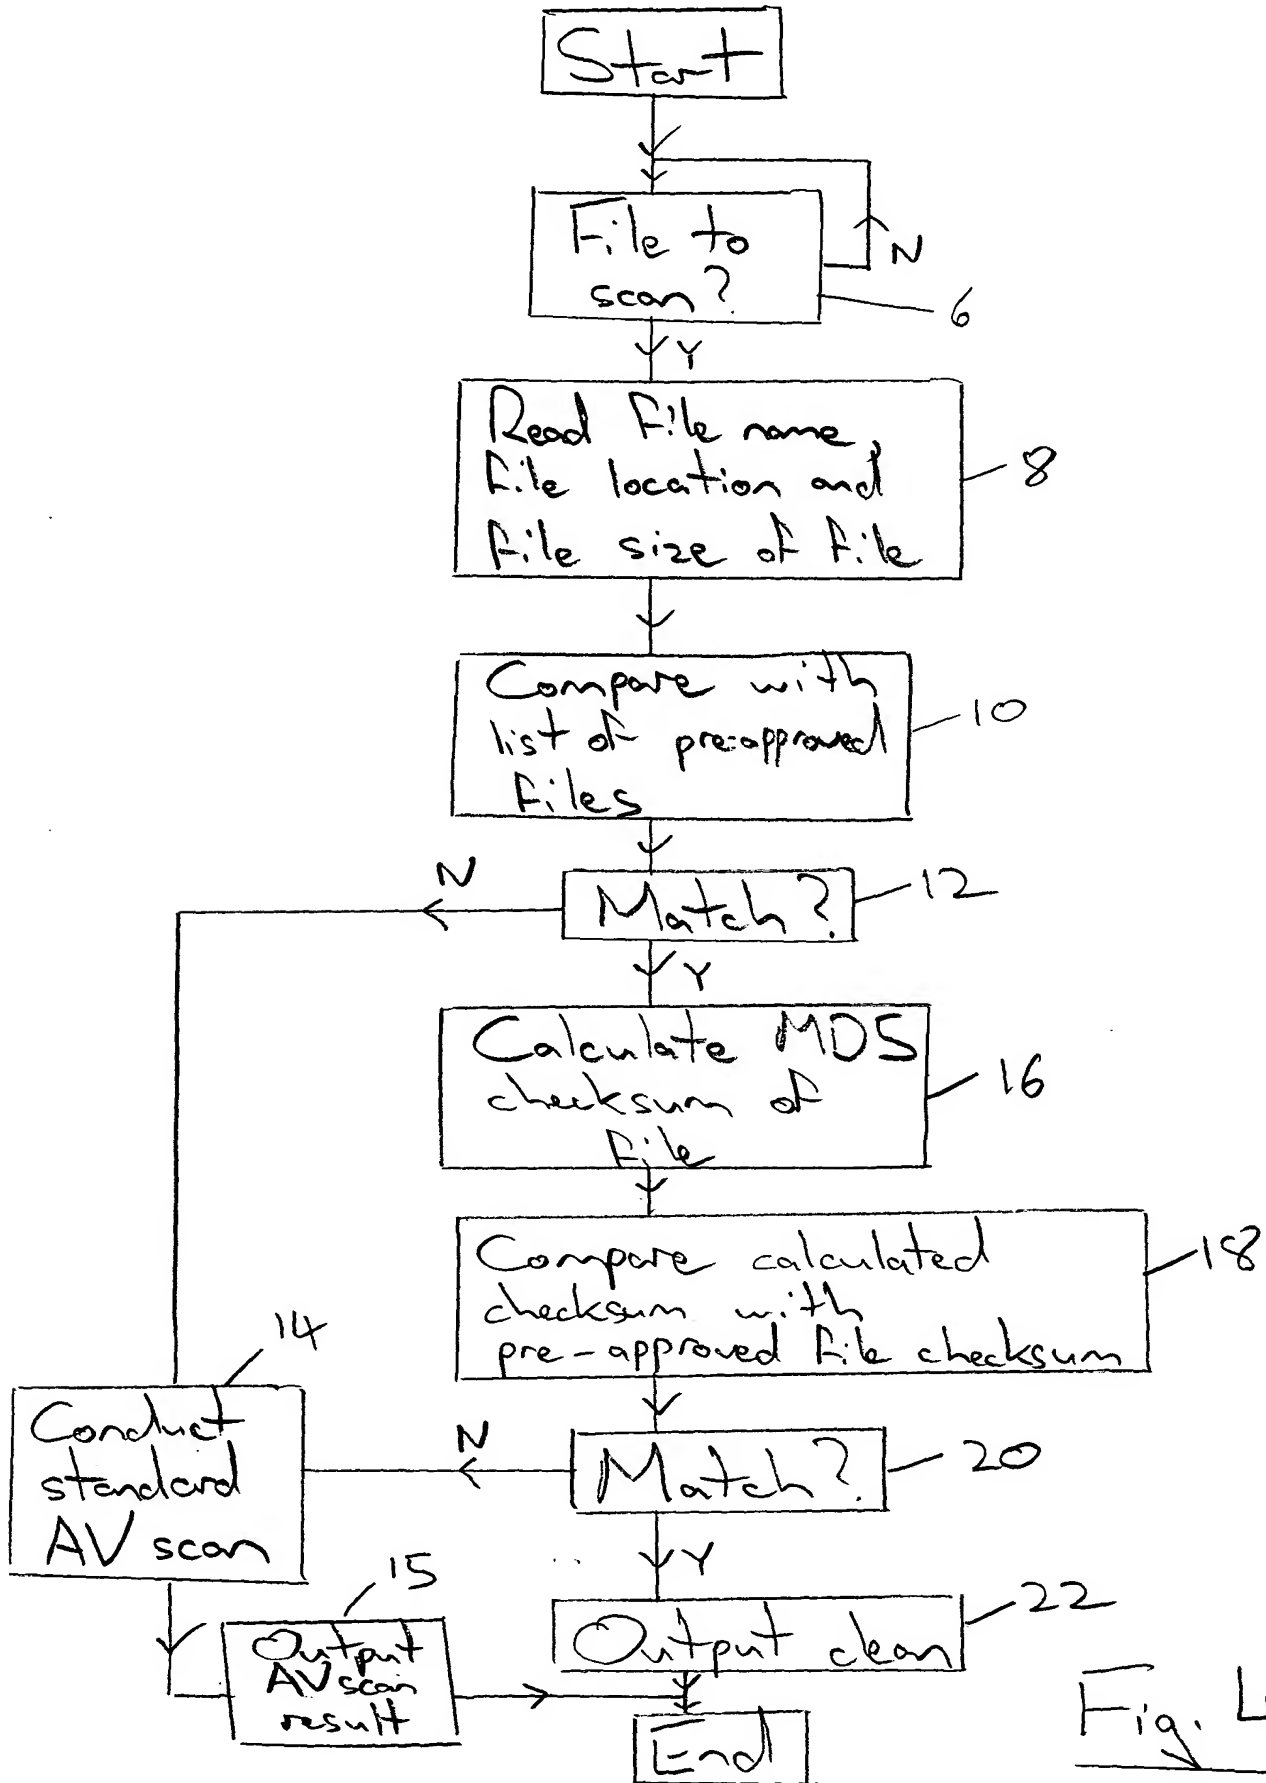 Start
File to
scan?
N
6
Y
Read File name,
File location and
File size of File
8
Compare with
list of pre-approved
Files
10
Match?
12
N
Y
Calculate MD5
checksum of
File
16
Compare calculated
checksum with
pre-approved File checksum
18
14
Conduct
standard
AV scan
N
Match?
20
Y
15
Output
AV scan
result
Output clean
22
End
Fig.